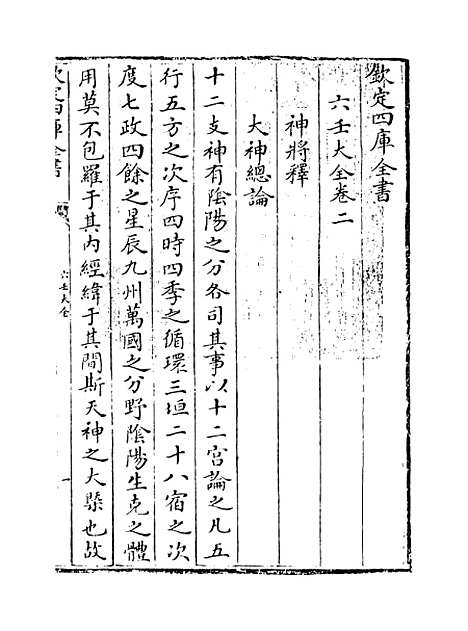 欽定四庫全書
六壬大全卷二
神將釋
大神總論
十二支神有陰陽之分各司其事以十二宮論之凡五
行五方之次序四時四季之循環三垣二十八宿之次
度七政四餘之星辰九州萬國之分野陰陽生克之體
用莫不包羅于其內經緯于其間斯天神之大槩也故
欽定四庫全書
六壬大全
一